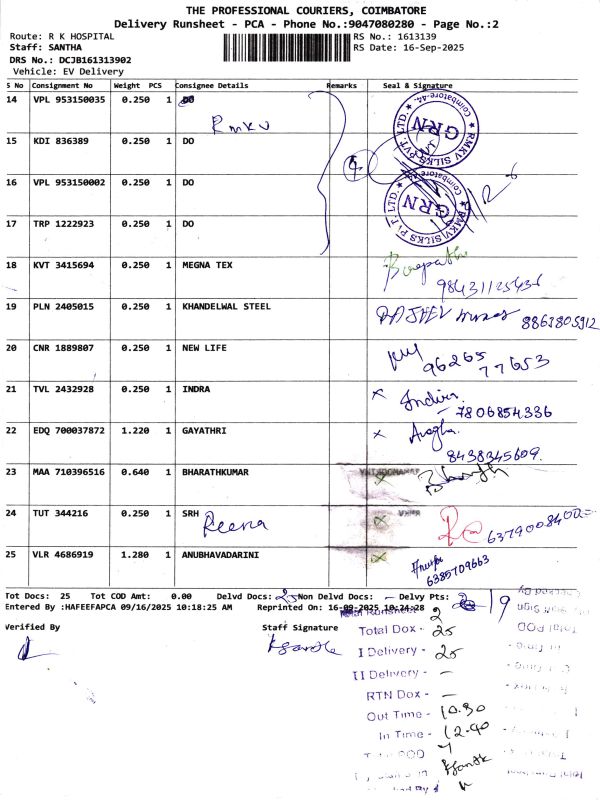 THE PROFESSIONAL COURIERS, COIMBATORE
Delivery Runsheet - PCA - Phone No.:9047080280 - Page No.:2
Route: R K HOSPITAL
RS No.: 1613139
Staff: SANTHA
RS Date: 16-Sep-2025
DRS No.: DCJB161313902
Vehicle: EV Delivery
S No Consignment No Weight PCS Consignee Details Remarks Seal & Signature
14 VPL 953150035 0.250 1 DO
Rmkv
15 KDI 836389 0.250 1 DO
16 VPL 953150002 0.250 1 DO
17 TRP 1222923 0.250 1 DO
4
RMKV SILKS PVT. LTD. GRN Coimbatore-44.
RMKV SILKS PVT. LTD. GRN Coimbatore
18 KVT 3415694 0.250 1 MEGNA TEX
98431125436
19 PLN 2405015 0.250 1 KHANDELWAL STEEL
8863805912
20 CNR 1889807 0.250 1 NEW LIFE
96265 77653
21 TVL 2432928 0.250 1 INDRA
x Indira
7806854336
22 EDQ 700037872 1.220 1 GAYATHRI
x
8438345609.
23 MAA 710396516 0.640 1 BHARATHKUMAR
x
24 TUT 344216 0.250 1 SRH
Reena
x 6379008400
25 VLR 4686919 1.280 1 ANUBHAVADARINI
x
6385709663
Tot Docs: 25 Tot COD Amt: 0.00 Delvd Docs: 25 Non Delvd Docs: - Delvy Pts: 19
Entered By :HAFEEFAPCA 09/16/2025 10:18:25 AM Reprinted On: 16-09-2025 10:24:28
Verified By
Staff Signature
Total Runsheet 2
Total Dox - 25
I Delivery - 25
II Delivery - —
RTN Dox - —
Out Time - 10.30
In Time - 12.40
Total POD